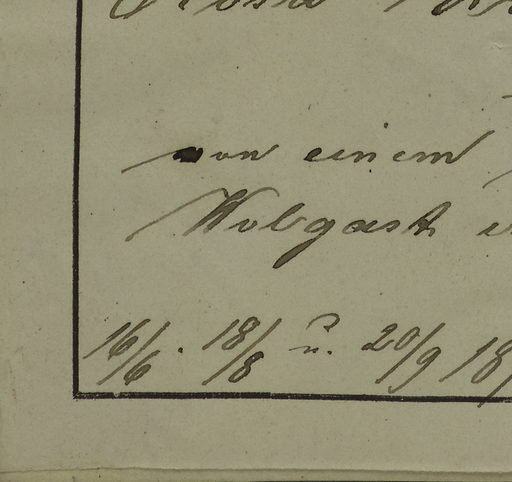 von einem
Wolgast
16/6. 18/8 u. 20/9 18